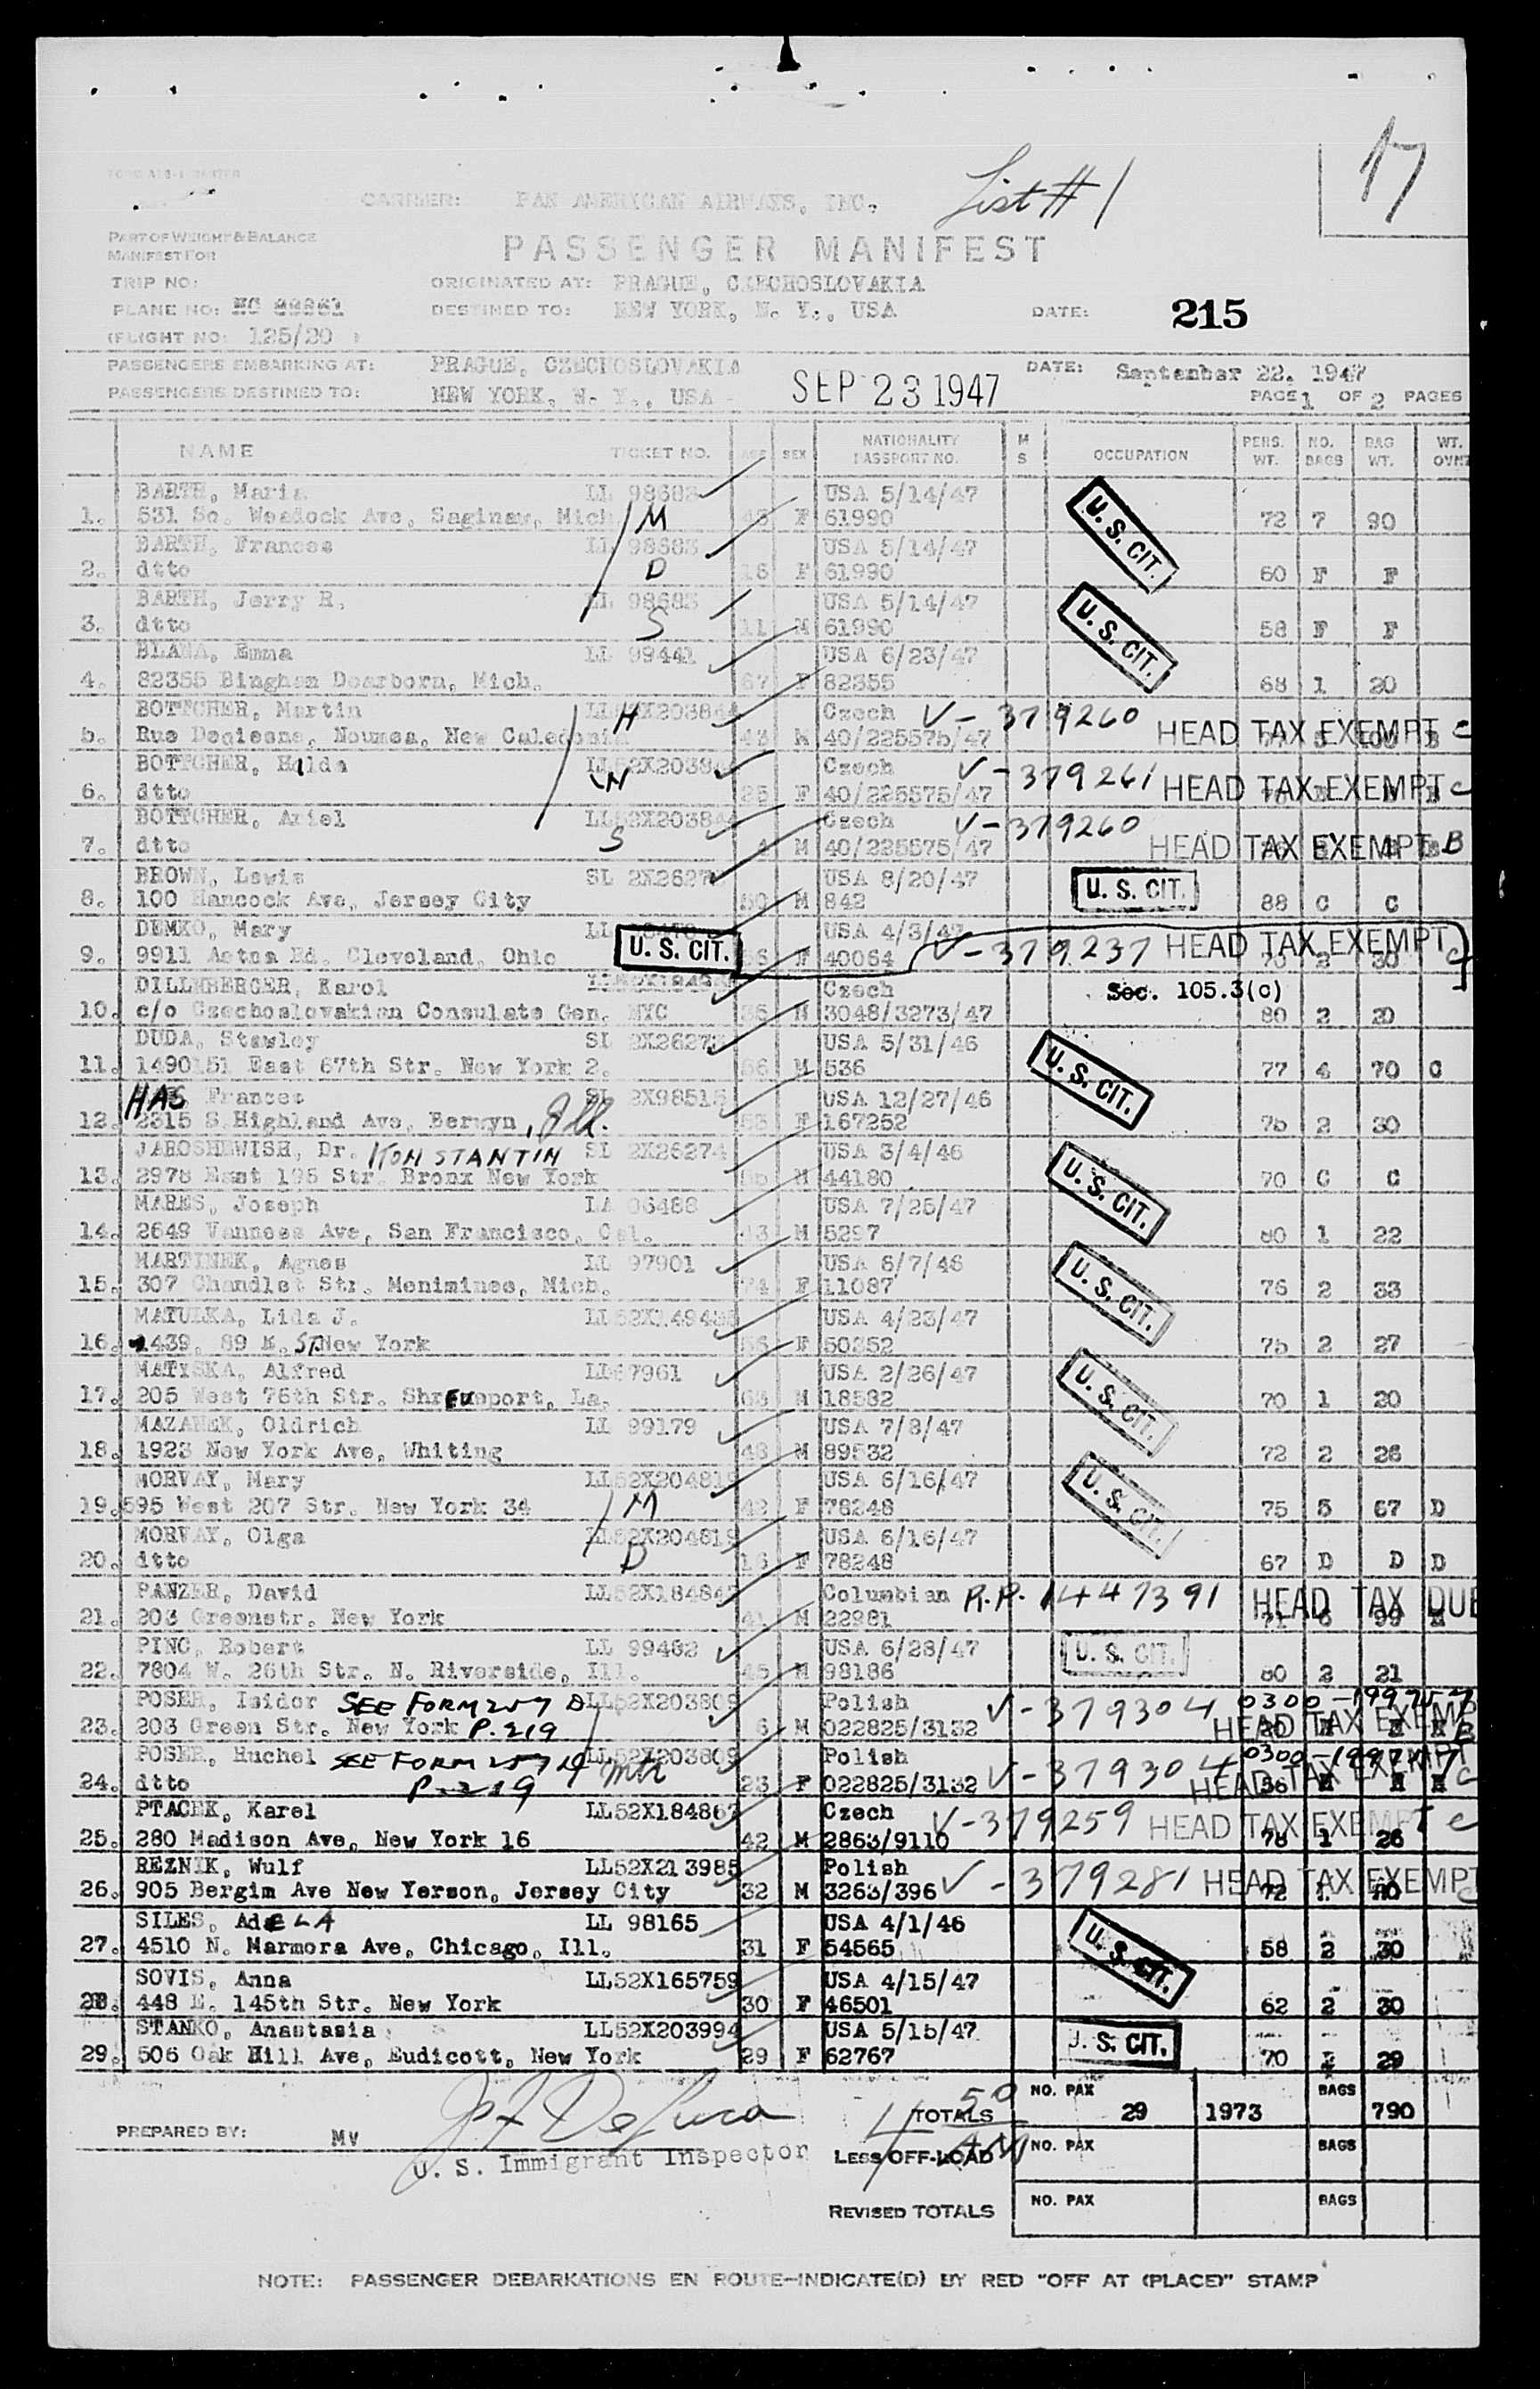 17
List # 1
CARRIER: PAN AMERICAN AIRWAYS, INC.
PART OF WEIGHT & BALANCE
MANIFEST FOR
PASSENGER MANIFEST
TRIP NO: ORIGINATED AT: PRAGUE, CZECHOSLOVAKIA
PLANE NO: NC DESTINED TO: NEW YORK, N. Y., USA DATE: 215
(FLIGHT NO: 125/20 )
PASSENGERS EMBARKING AT: PRAGUE, CZECHOSLOVAKIA DATE: September 22. 1947
PASSENGERS DESTINED TO: NEW YORK, N. Y., USA SEP 23 1947 PAGE 1 OF 2 PAGES
NAME TICKET NO. AGE SEX NATIONALITY PASSPORT NO. M S OCCUPATION PERS. WT. NO. BAGS BAG WT. WT. OVHT
BARTH, Maria LL 98683 USA 5/14/47
1. 531 So. Weadock Ave, Saginaw, Mich M 43 F 61990 U. S. CIT. 72 7 90
BARTH, Frances LL 98683 USA 5/14/47
2. dtto D 16 F 61990 60 F F
BARTH, Jerry R. LL 98683 USA 5/14/47
3. dtto S 11 M 61990 U. S. CIT. 58 F F
BLAHA, Emma LL 99441 USA 6/23/47
4. 82355 Bingham Dearborn, Mich. 67 F 82355 68 1 20
BOTTCHER, Martin LL52X203844 Czech V-379260 HEAD TAX EXEMPT C
5. Rue Noumea, New Caledonia H 43 M 40/225575/47
BOTTCHER, Hilda LL52X203844 Czech V-379261 HEAD TAX EXEMPT C
6. dtto W 25 F 40/225575/47
BOTTCHER, Ariel LL52X203844 Czech V-379260 HEAD TAX EXEMPT B
7. dtto S 4 M 40/225575/47
BROWN, Lewis SL 2X2627 USA 8/20/47
8. 100 Hancock Ave, Jersey City 50 M 842 U. S. CIT. 88 C C
DEMKO, Mary LL USA 4/3/47
9. 9911 Aetna Rd. Cleveland, Ohio U. S. CIT. 56 F 40064 V-379237 HEAD TAX EXEMPT C 70 2 30
DILLNBERGER, Karol Czech Sec. 105.3(c)
10. c/o Czechoslovakian Consulate Gen. NYC 35 M 3048/3273/47 80 2 20
DUDA, Stewley SL 2X26273 USA 5/31/46
11. 1490151 East 67th Str. New York 2. 56 M 536 U. S. CIT. 77 4 70 C
HAS Frances SL 2X98515 USA 12/27/46
12. 2315 S.Highland Ave, Berwyn, Ill. 55 F 167252 75 2 30
JAROSHEWISH, Dr. KONSTANTIN SL 2X26274 USA 3/4/46
13. 2978 East 195 Str. Bronx New York M 44180 U. S. CIT. 70 C C
MARES, Joseph LA 06488 USA 7/25/47
14. 2649 Vanness Ave, San Francisco, Cal. 43 M 5297 80 1 22
MARTINEK, Agnes LL 97901 USA 8/7/46
15. 307 Chandlet Str. Meniminee, Mich. 74 F 11087 U. S. CIT. 76 2 33
MATULKA, Lida J. LL52X149435 USA 4/23/47
16. 1439, 89 E. ST New York 56 F 50352 75 2 27
MATYSKA, Alfred LL67961 USA 2/26/47
17. 205 West 76th Str. Shreveport, La. 63 M 18582 U. S. CIT. 70 1 20
MAZANEK, Oldrich LL 99179 USA 7/8/47
18. 1923 New York Ave, Whiting 48 M 89532 72 2 26
MORVAY, Mary LL52X204819 USA 6/16/47
19. 595 West 207 Str. New York 34 M 42 F 78248 U. S. CIT. 75 5 67 D
MORVAY, Olga LL52X204819 USA 6/16/47
20. dtto D 16 F 78248 67 D D D
PANZER, David LL52X184847 Columbian R.P. 1447391 HEAD TAX DUE
21. 203 Greenstr. New York 41 M 22981 71 6 99
PINC, Robert LL 99462 USA 6/28/47
22. 7804 W. 26th Str. N. Riverside, Ill. 45 M 98186 U. S. CIT. 80 2 21
POSER, Isidor SEE FORM 257 D LL52X203809 Polish V-379304 HEAD TAX EXEMPT
23. 203 Green Str. New York P. 219 6 M 022825/3132 B
POSER, Ruchel SEE FORM 257 D LL52X203809 Polish V-379304 HEAD TAX EXEMPT
24. dtto P. 219 Mth 23 F 022825/3132 56 C
PTACEK, Karel LL52X184867 Czech V-379259 HEAD TAX EXEMPT C
25. 280 Madison Ave, New York 16 42 M 2863/9110 78 1 26
REZNIK, Wulf LL52X213985 Polish V-379281 HEAD TAX EXEMPT C
26. 905 Bergim Ave New Yerson, Jersey City 32 M 3263/396 72 1
SILES, AdELA LL 98165 USA 4/1/46
27. 4510 N. Marmora Ave, Chicago, Ill. 31 F 54565 U. S. CIT. 58 2 30
SOVIS, Anna LL52X165759 USA 4/15/47
28. 448 E. 145th Str. New York 30 F 46501 62 2 30
STANKO, Anastasia LL52X203994 USA 5/15/47
29. 506 Oak Hill Ave, Eudicott, New York 29 F 62767 U. S. CIT. 70 2 29
TOTALS NO. PAX 29 1973 BAGS 790
PREPARED BY: MV J F DeLuca
U. S. Immigrant Inspector LESS OFF-LOAD NO. PAX BAGS
REVISED TOTALS NO. PAX BAGS
NOTE: PASSENGER DEBARKATIONS EN ROUTE-INDICATE(D) BY RED "OFF AT (PLACE)" STAMP